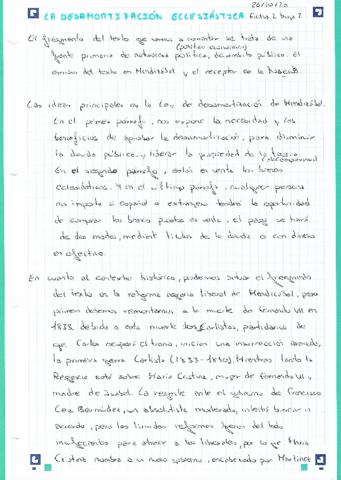 26/10/20
LA DESAMORTIZACIÓN ECLESIÁSTICA Ficha 2 hoja 2
El fragmento del texto que vamos a comentar se trata de una
(político económica)
fuente primaria de naturaleza política, de ámbito público. El
emisor del texto es Mendizábal y el receptor es la Nación.
Las ideas principales es la Ley de desamortización de Mendizábal.
En el primer párrafo, nos expone la necesidad y los
beneficios de aprobar la desamortización, para disminuir
la deuda pública, y liberar la propiedad de la tierra
En el segundo párrafo, están en venta los bienes
eclesiásticos. Y en el último párrafo, cualquier persona
no importa si español o extranjero tendrá la oportunidad
de comprar los bienes puestos en venta, el pago se hará
de dos modos, mediante títulos de la deuda o con dinero
en efectivo.
En cuanto al contexto histórico, podemos situar el fragmento
del texto en la reforma agraria liberal de Mendizábal, pero
primero debemos remontarnos a la muerte de Fernando VII en
1833, debido a esta muerte los Carlistas, partidarios de
que Carlos ocupara el trono, inician una insurrección armada,
la primera guerra Carlista (1833-1840). Mientras tanto la
Regencia está sobre María Cristina, mujer de Fernando VII y
madre de Isabel. La regente ante el gobierno de Francisco
Cea Bermúdez, un absolutista moderado, intentó buscar un
acuerdo, pero las tímidas reformas fueron del todo
insuficientes para atraer a los liberales, por lo que María
Cristina nombra a un nuevo gobierno, encabezado por Martínez